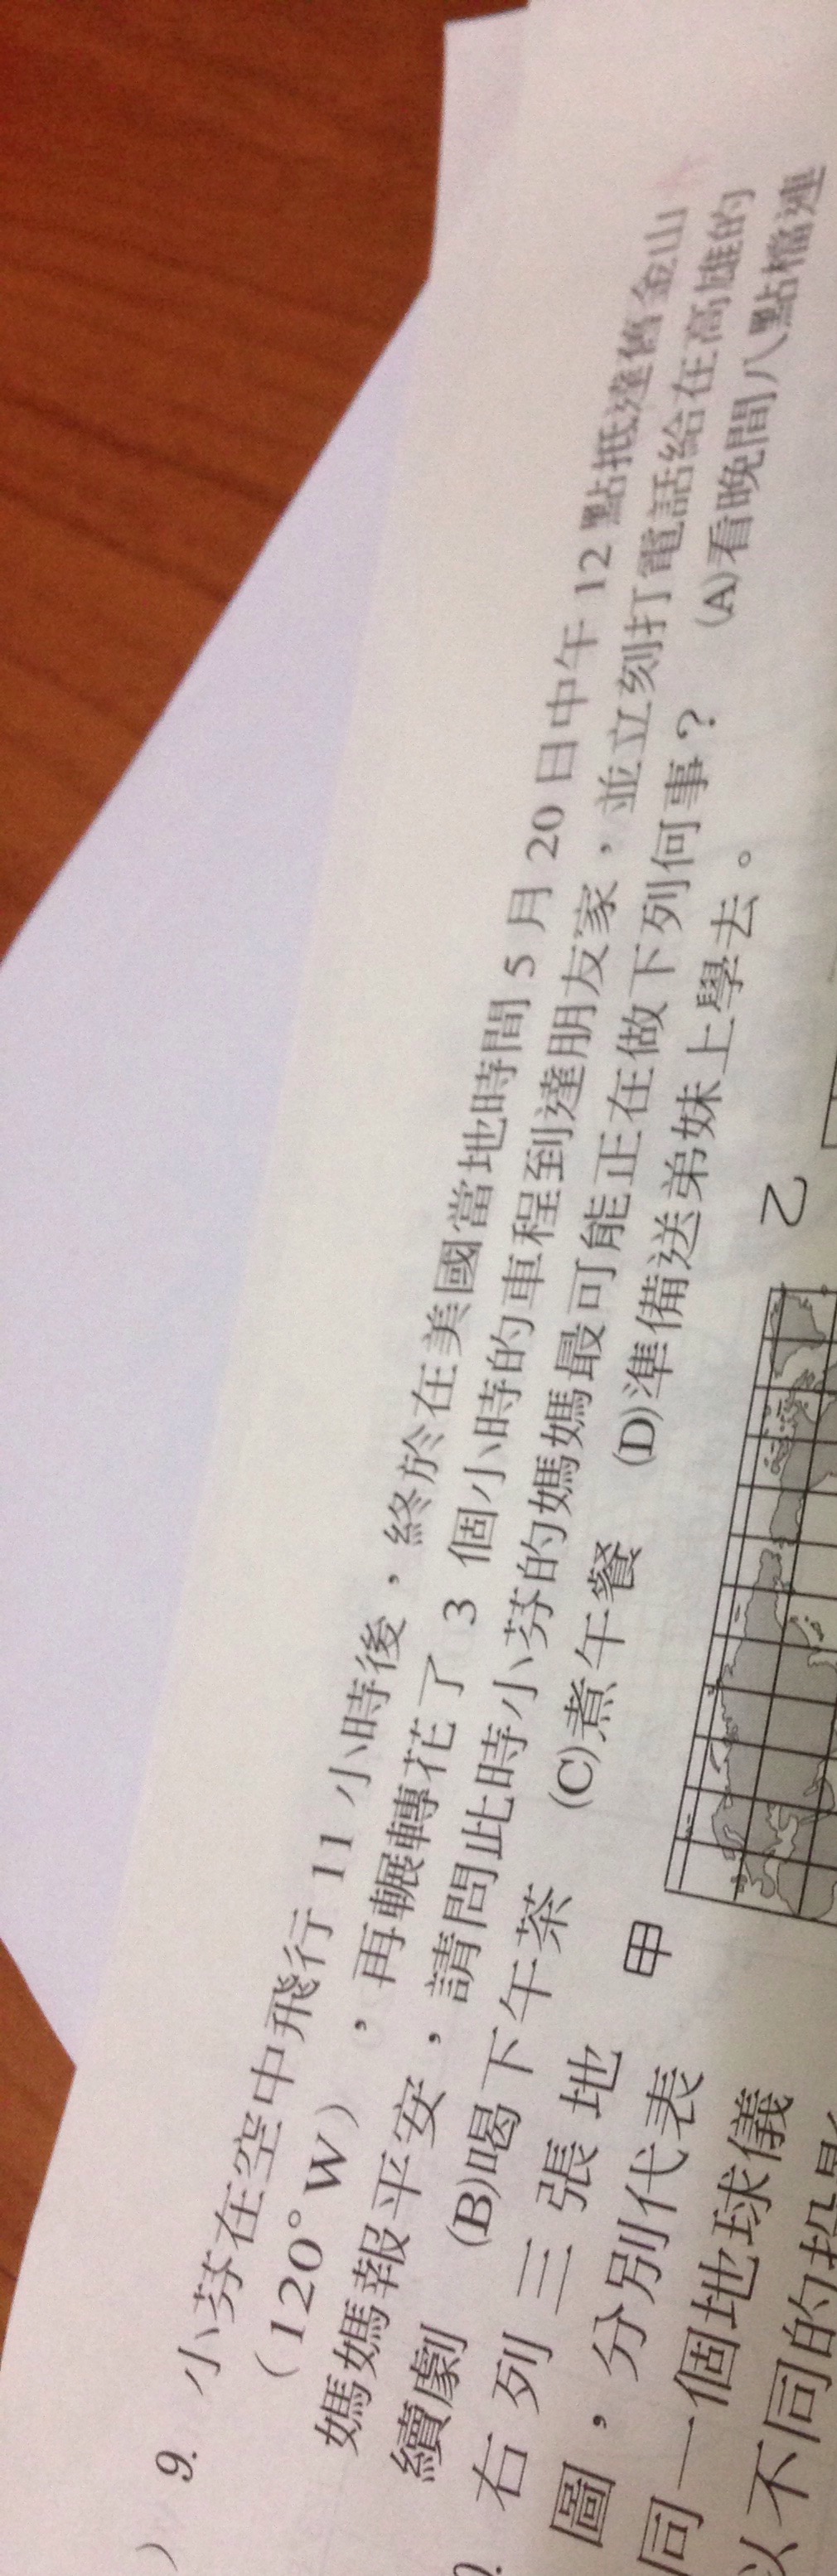 ） 9. 小芬在空中飛行 11 小時後，終於在美國當地時間 5 月 20 日中午 12 點抵達舊金山
（120°W），再輾轉花了 3 個小時的車程到達朋友家，並立刻打電話給在高雄的
媽媽報平安，請問此時小芬的媽媽最可能正在做下列何事？ (A)看晚間八點檔連
續劇 (B)喝下午茶 (C)煮午餐 (D)準備送弟妹上學去。
右列三張地
圖，分別代表
同一個地球儀
以不同的投影
甲
乙